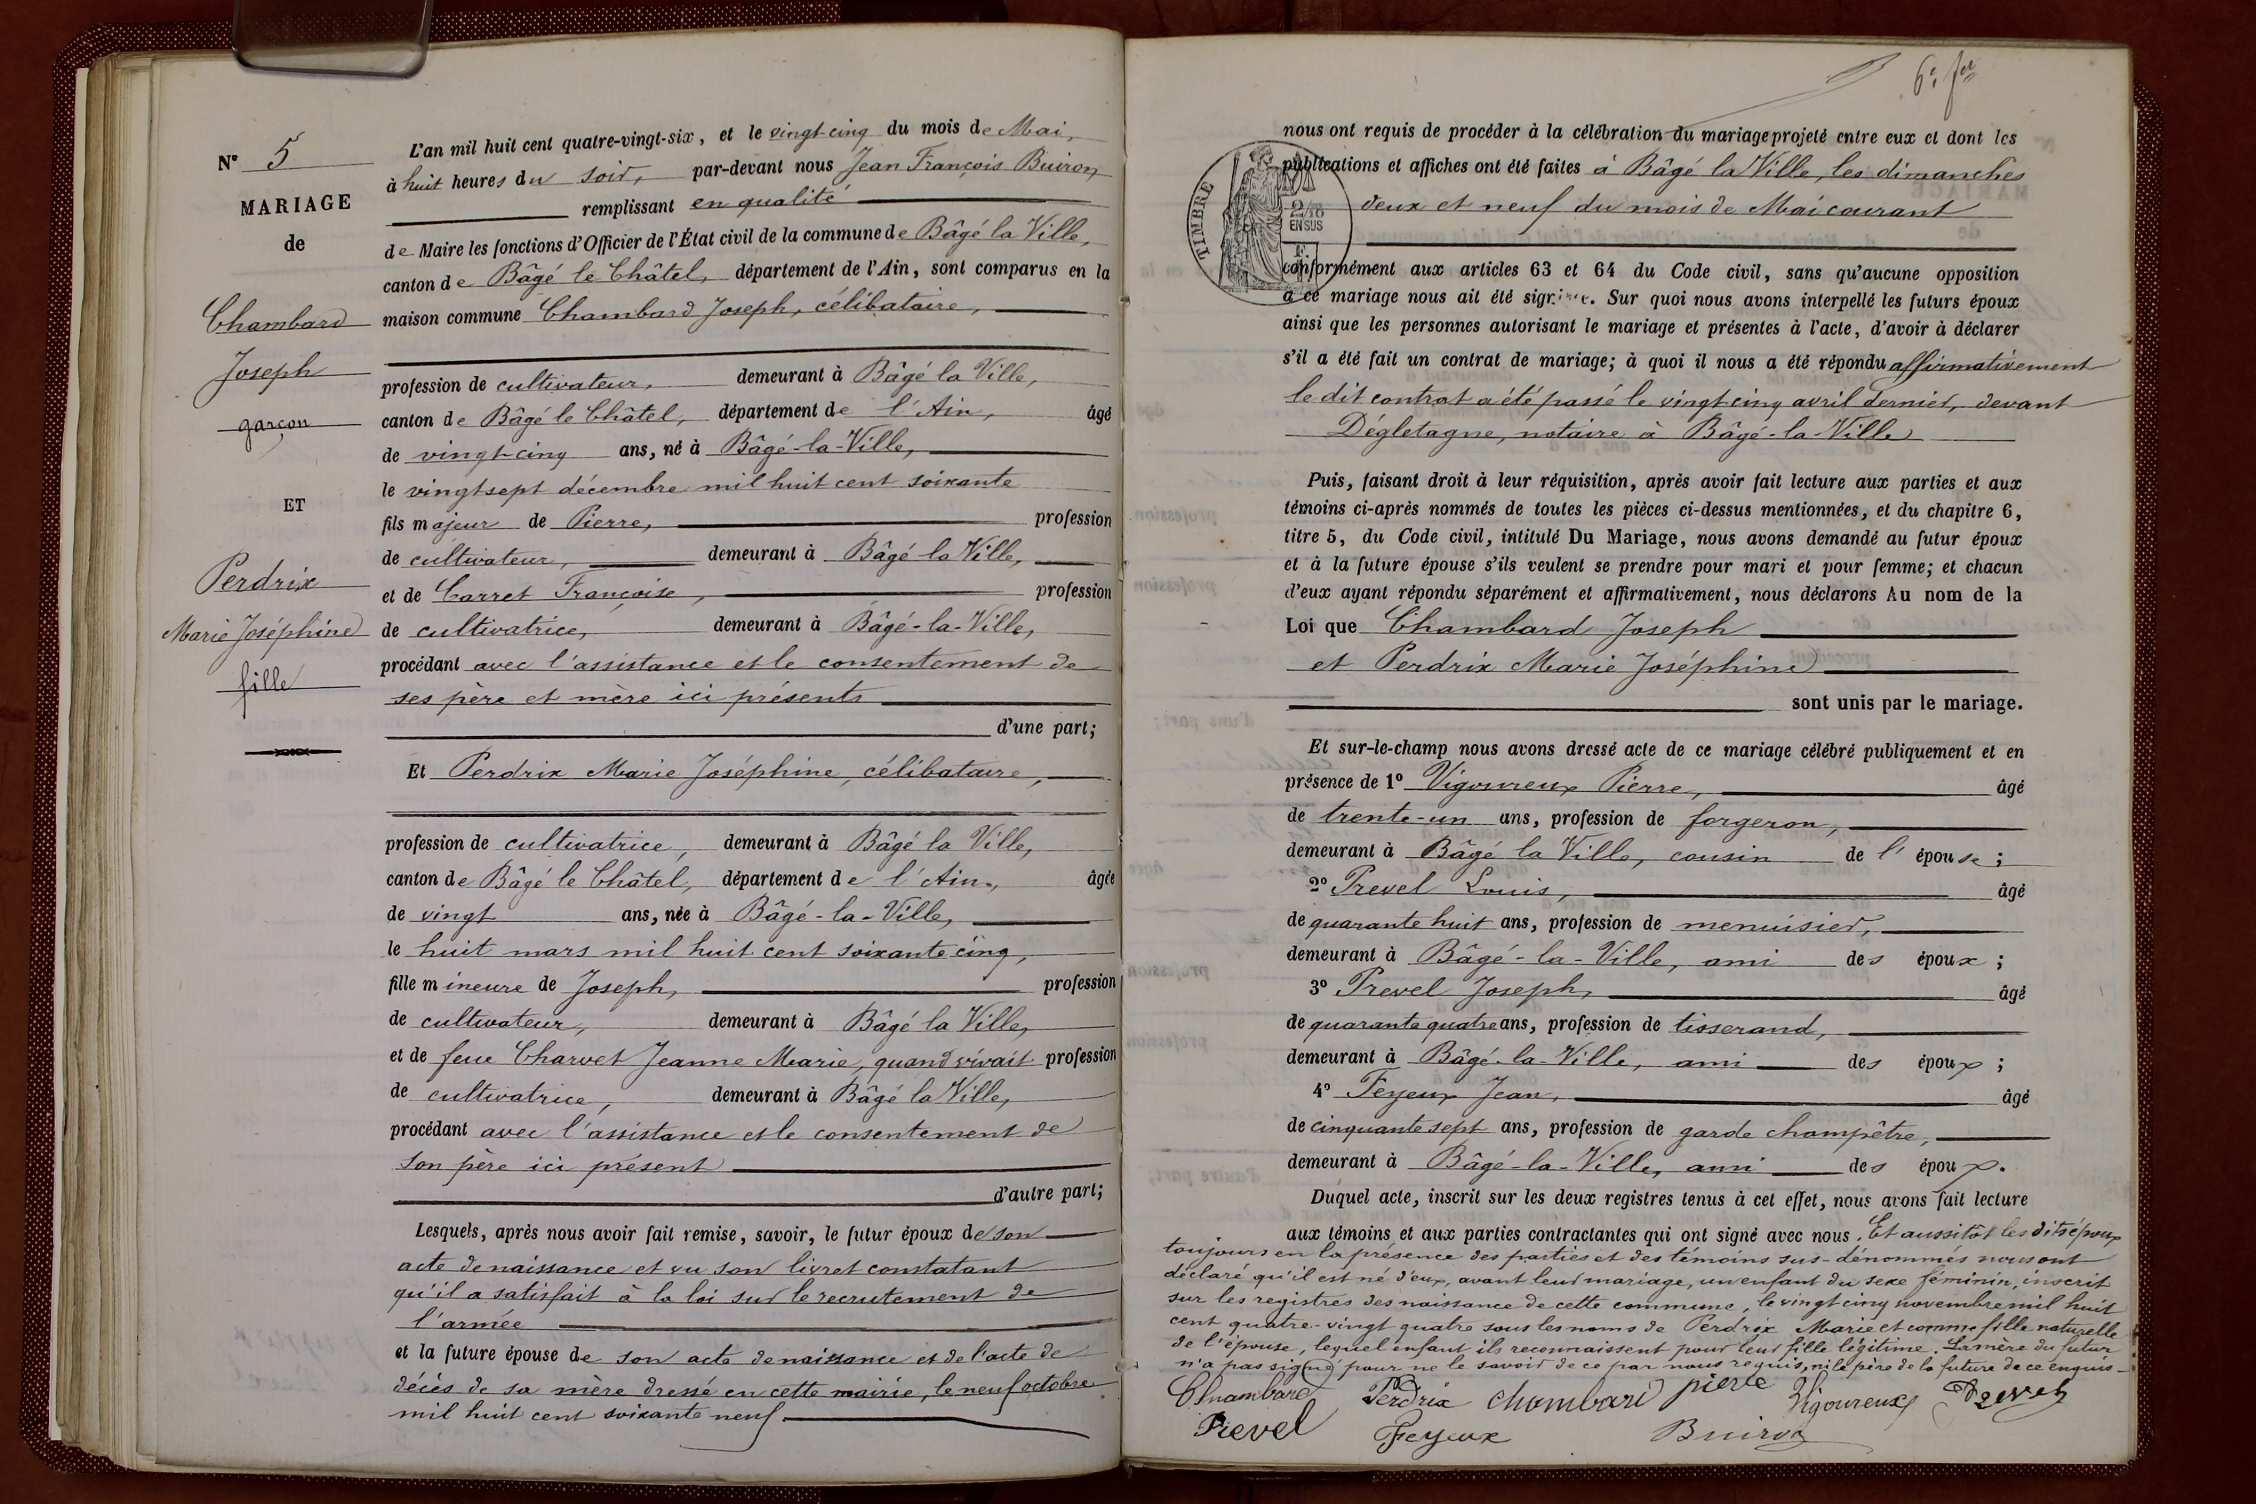 N° 5
MARIAGE
de
Chambard
Joseph
garçon
ET
Perdrix
Marie Joséphine
fille
L'an mil huit cent quatre-vingt-six, et le vingt-cinq du mois de Mai,
à huit heures du soir, par-devant nous Jean François Buiron,
remplissant en qualité
de Maire les fonctions d'Officier de l'État civil de la commune de Bâgé la Ville,
canton de Bâgé le Châtel, département de l'Ain, sont comparus en la
maison commune Chambard Joseph, célibataire,
profession de cultivateur, demeurant à Bâgé la Ville,
canton de Bâgé le Châtel, département de l'Ain, âgé
de vingt-cinq ans, né à Bâgé-la-Ville,
le vingt sept décembre mil huit cent soixante
fils majeur de Pierre, profession
de cultivateur, demeurant à Bâgé la Ville,
et de Carret Françoise, profession
de cultivatrice, demeurant à Bâgé-la-Ville,
procédant avec l'assistance et le consentement de
ses père et mère ici présents
d'une part;
Et Perdrix Marie Joséphine, célibataire,
profession de cultivatrice, demeurant à Bâgé la Ville,
canton de Bâgé le Châtel, département de l'Ain, âgée
de vingt ans, née à Bâgé-la-Ville,
le huit mars mil huit cent soixante cinq,
fille mineure de Joseph, profession
de cultivateur, demeurant à Bâgé la Ville,
et de feue Charvet Jeanne Marie, quand vivait profession
de cultivatrice, demeurant à Bâgé la Ville,
procédant avec l'assistance et le consentement de
son père ici présent
d'autre part;
Lesquels, après nous avoir fait remise, savoir, le futur époux de son
acte de naissance et vu son livret constatant
qu'il a satisfait à la loi sur le recrutement de
l'armée
et la future épouse de son acte de naissance et de l'acte de
décès de sa mère dressé en cette mairie, le neuf octobre
mil huit cent soixante neuf
TIMBRE
2/10
EN SUS
nous ont requis de procéder à la célébration du mariage projeté entre eux et dont les
publications et affiches ont été faites à Bâgé la Ville, les dimanches
deux et neuf du mois de Mai courant
conformément aux articles 63 et 64 du Code civil, sans qu'aucune opposition
à ce mariage nous ait été signifiée. Sur quoi nous avons interpellé les futurs époux
ainsi que les personnes autorisant le mariage et présentes à l'acte, d'avoir à déclarer
s'il a été fait un contrat de mariage; à quoi il nous a été répondu affirmativement
le dit contrat a été passé le vingt cinq avril dernier, devant
Dégletagne, notaire à Bâgé-la-Ville
Puis, faisant droit à leur réquisition, après avoir fait lecture aux parties et aux
témoins ci-après nommés de toutes les pièces ci-dessus mentionnées, et du chapitre 6,
titre 5, du Code civil, intitulé Du Mariage, nous avons demandé au futur époux
et à la future épouse s'ils veulent se prendre pour mari et pour femme; et chacun
d'eux ayant répondu séparément et affirmativement, nous déclarons Au nom de la
Loi que Chambard Joseph
et Perdrix Marie Joséphine
sont unis par le mariage.
Et sur-le-champ nous avons dressé acte de ce mariage célébré publiquement et en
présence de 1° Vigoureux Pierre, âgé
de trente-un ans, profession de forgeron,
demeurant à Bâgé la Ville, cousin de l'épouse;
2° Prevel Louis, âgé
de quarante huit ans, profession de menuisier,
demeurant à Bâgé-la-Ville, ami des époux;
3° Prevel Joseph, âgé
de quarante quatre ans, profession de tisserand,
demeurant à Bâgé-la-Ville, ami des époux;
4° Feyeux Jean, âgé
de cinquante sept ans, profession de garde champêtre,
demeurant à Bâgé-la-Ville, ami des époux.
Duquel acte, inscrit sur les deux registres tenus à cet effet, nous avons fait lecture
aux témoins et aux parties contractantes qui ont signé avec nous. Et aussitôt les dits époux
toujours en la présence des parties et des témoins sus-dénommés nous ont
déclaré qu'il est né d'eux, avant leur mariage, un enfant du sexe féminin, inscrit
sur les registres des naissance de cette commune, le vingt cinq novembre mil huit
cent quatre-vingt quatre sous les noms de Perdrix Marie et comme fille naturelle
de l'épouse, lequel enfant ils reconnaissent pour leur fille légitime. La mère du futur
n'a pas signé pour ne le savoir de ce par nous requis, ni le père de la future de ce enquis
Chambard Perdrix chambard pierre Vigoureux Prevel
Prevel Feyeux Buiron